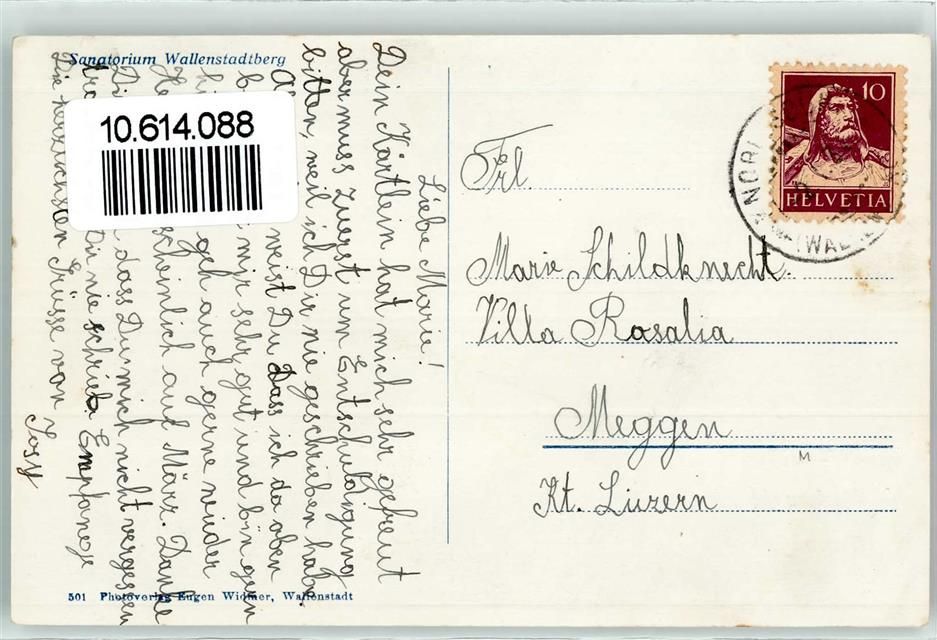 Sanatorium Wallenstadtberg
10.614.088
Liebe Marie!
Dein Kärtlein hat mich sehr gefreut
aber muss zuerst um Entschuldigung
bitten, weil ich Dir nie geschrieben habe
weist Du Dass ich da oben
mir sehr gut und bin gern
geh auch gerne wieder
scheinlich auf März. Danke
dass Du mich nicht vergessen
Dir nie schrieb Empfange
Die herzlichsten Grüsse von
Josy
501 Photoverlag Eugen Widmer, Wallenstadt
10
HELVETIA
Frl.
Marie Schildknecht.
Villa Rosalia
Meggen
M
Kt. Luzern